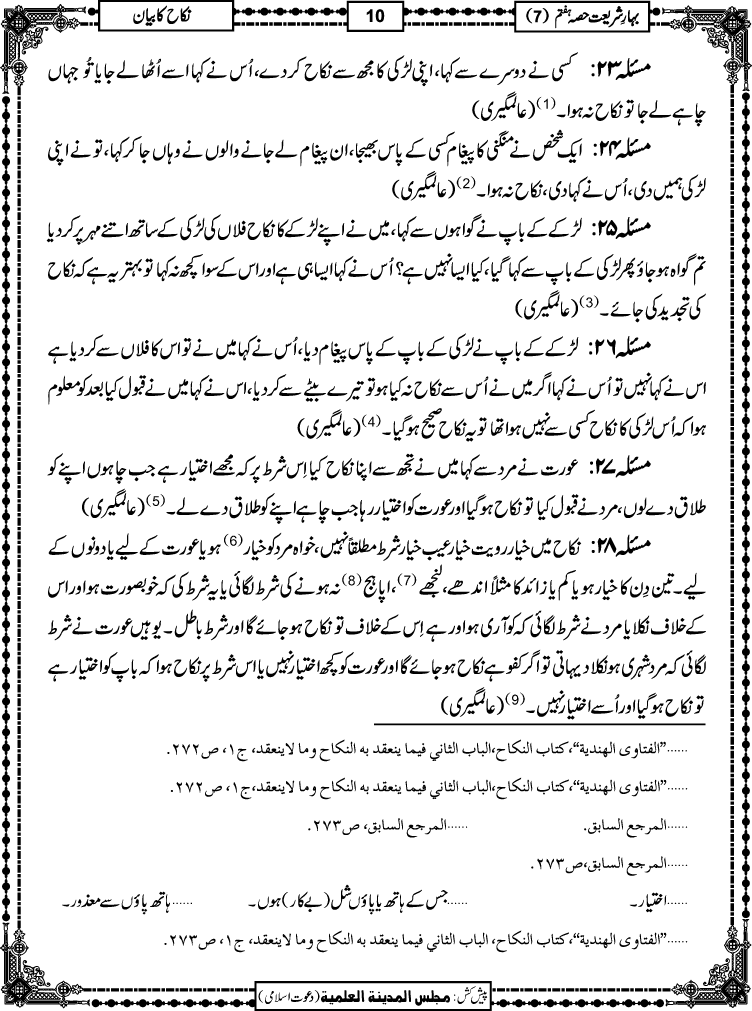 بہارِ شریعت حصہ ہفتم (7)
10
نکاح کا بیان
مسئلہ ۲۳: کسی نے دوسرے سے کہا، اپنی لڑکی کا مجھ سے نکاح کر دے، اُس نے کہا اسے اُٹھا لے جا یا تُو جہاں
چاہے لے جا تو نکاح نہ ہوا۔(1) (عالمگیری)
مسئلہ ۲۴: ایک شخص نے منگنی کا پیغام کسی کے پاس بھیجا، ان پیغام لے جانے والوں نے وہاں جا کر کہا، تو نے اپنی
لڑکی ہمیں دی، اُس نے کہا دی، نکاح نہ ہوا۔(2) (عالمگیری)
مسئلہ ۲۵: لڑکے کے باپ نے گواہوں سے کہا، میں نے اپنے لڑکے کا نکاح فلاں کی لڑکی کے ساتھ اتنے مہر پر کر دیا
تم گواہ ہو جاؤ پھر لڑکی کے باپ سے کہا گیا، کیا ایسا نہیں ہے؟ اُس نے کہا ایسا ہی ہے اور اس کے سوا کچھ نہ کہا تو بہتر یہ ہے کہ نکاح
کی تجدید کی جائے۔(3) (عالمگیری)
مسئلہ ۲۶: لڑکے کے باپ نے لڑکی کے باپ کے پاس پیغام دیا، اُس نے کہا میں نے تو اس کا فلاں سے کر دیا ہے
اس نے کہا نہیں تو اُس نے کہا اگر میں نے اُس سے نکاح نہ کیا ہو تو تیرے بیٹے سے کر دیا، اس نے کہا میں نے قبول کیا بعد کو معلوم
ہوا کہ اُس لڑکی کا نکاح کسی سے نہیں ہوا تھا تو یہ نکاح صحیح ہو گیا۔(4) (عالمگیری)
مسئلہ ۲۷: عورت نے مرد سے کہا میں نے تجھ سے اپنا نکاح کیا اِس شرط پر کہ مجھے اختیار ہے جب چاہوں اپنے کو
طلاق دے لوں، مرد نے قبول کیا تو نکاح ہو گیا اور عورت کو اختیار رہا جب چاہے اپنے کو طلاق دے لے۔(5) (عالمگیری)
مسئلہ ۲۸: نکاح میں خیارِ رویت خیارِ عیب خیارِ شرط مطلقاً نہیں، خواہ مرد کو خیار(6) ہو یا عورت کے لیے یا دونوں کے
لیے۔ تین دِن کا خیار ہو یا کم یا زائد کا مثلاً اندھے، لُنجھے(7)، اپاہج(8) نہ ہونے کی شرط لگائی یا یہ شرط کی کہ خوبصورت ہو اور اس
کے خلاف نکلا یا مرد نے شرط لگائی کہ کوآری ہو اور ہے اِس کے خلاف تو نکاح ہو جائے گا اور شرط باطل۔ یوہیں عورت نے شرط
لگائی کہ مرد شہری ہو نکلا دیہاتی تو اگر کفو ہے نکاح ہو جائے گا اور عورت کو کچھ اختیار نہیں یا اس شرط پر نکاح ہوا کہ باپ کو اختیار ہے
تو نکاح ہو گیا اور اُسے اختیار نہیں۔(9) (عالمگیری)
......"الفتاوى الهندية"، كتاب النكاح، الباب الثاني فيما ينعقد به النكاح وما لا ينعقد، ج١، ص٢٧٢.
......"الفتاوى الهندية"، كتاب النكاح، الباب الثاني فيما ينعقد به النكاح وما لا ينعقد، ج١، ص٢٧٢.
......المرجع السابق. ......المرجع السابق، ص٢٧٣.
......المرجع السابق، ص٢٧٣.
......اختیار۔ ......جس کے ہاتھ یا پاؤں شل (بے کار) ہوں۔ ......ہاتھ پاؤں سے معذور۔
......"الفتاوى الهندية"، كتاب النكاح، الباب الثاني فيما ينعقد به النكاح وما لا ينعقد، ج١، ص٢٧٣.
پیش کش: مجلس المدینة العلمیة (دعوت اسلامی)